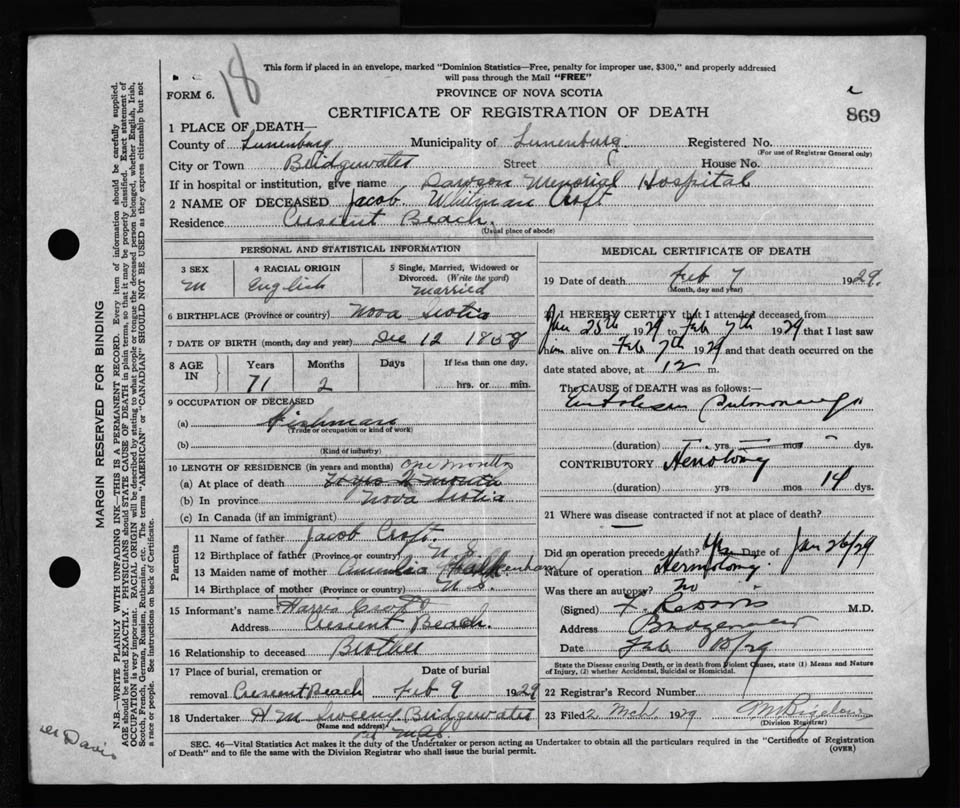 18
This form if placed in an envelope, marked "Dominion Statistics—Free, penalty for improper use, $300," and properly addressed
will pass through the Mail "FREE"
FORM 6.
PROVINCE OF NOVA SCOTIA
CERTIFICATE OF REGISTRATION OF DEATH
869
1 PLACE OF DEATH—
County of Lunenburg Municipality of Lunenburg Registered No.
(For use of Registrar General only)
City or Town Bridgewater Street House No.
If in hospital or institution, give name Dawson Memorial Hospital
2 NAME OF DECEASED Jacob Whitman Croft
Residence Crescent Beach.
(Usual place of abode)
PERSONAL AND STATISTICAL INFORMATION
3 SEX 4 RACIAL ORIGIN 5 Single, Married, Widowed or
Divorced. (Write the word)
M English married
6 BIRTHPLACE (Province or country) Nova Scotia
7 DATE OF BIRTH (month, day and year) Dec 12 1858
8 AGE IN Years Months Days If less than one day,
71 2 hrs. or min.
9 OCCUPATION OF DECEASED
(a) Fishman
(Trade or occupation or kind of work)
(b)
(Kind of industry)
10 LENGTH OF RESIDENCE (in years and months) One Months
(a) At place of death
(b) In province Nova Scotia
(c) In Canada (if an immigrant)
Parents
11 Name of father Jacob Croft.
12 Birthplace of father (Province or country) N.S.
13 Maiden name of mother
14 Birthplace of mother (Province or country) N.S.
15 Informant's name Croft
Address Crescent Beach.
16 Relationship to deceased Brother
17 Place of burial, cremation or Date of burial
removal Crescent Beach Feb 9 1929
18 Undertaker H M Sweeny Bridgewater
(Name and address)
MEDICAL CERTIFICATE OF DEATH
19 Date of death Feb 7 1929.
(Month, day and year)
20 I HEREBY CERTIFY that I attended deceased from
Jan 25th 1929 to Feb 7th 1929 that I last saw
him alive on Feb 7th 1929 and that death occurred on the
date stated above, at 12 m.
The CAUSE OF DEATH was as follows:—
Pulmonary
(duration) yrs mos dys.
CONTRIBUTORY
(duration) yrs mos 14 dys.
21 Where was disease contracted if not at place of death?
Did an operation precede death? Yes Date of Jan 26/29
Nature of operation
Was there an autopsy? No
(Signed) M.D.
Address Bridgewater
Date Feb
State the Disease causing Death, or in death from Violent Causes, state (1) Means and Nature
of Injury, (2) whether Accidental, Suicidal or Homicidal.
22 Registrar's Record Number
23 Filed 2 Mch 1929
(Division Registrar)
SEC. 46—Vital Statistics Act makes it the duty of the Undertaker or person acting as Undertaker to obtain all the particulars required in the "Certificate of Registration
of Death" and to file the same with the Division Registrar who shall issue the burial permit. (OVER)
MARGIN RESERVED FOR BINDING
N.B.—WRITE PLAINLY WITH UNFADING INK—THIS IS A PERMANENT RECORD. Every item of information should be carefully supplied.
AGE should be stated EXACTLY. PHYSICIANS should STATE CAUSE OF DEATH in plain terms, so that it may be properly classified. Exact statement of
OCCUPATION is very important. RACIAL ORIGIN will be described by stating to what people or tongue the deceased person belonged, whether English, Irish,
Scotch, French, German, Russian, Ruthenian, etc. The terms "AMERICAN" or "CANADIAN" SHOULD NOT BE USED as they express citizenship but not
a race or people. See instructions on back of Certificate.